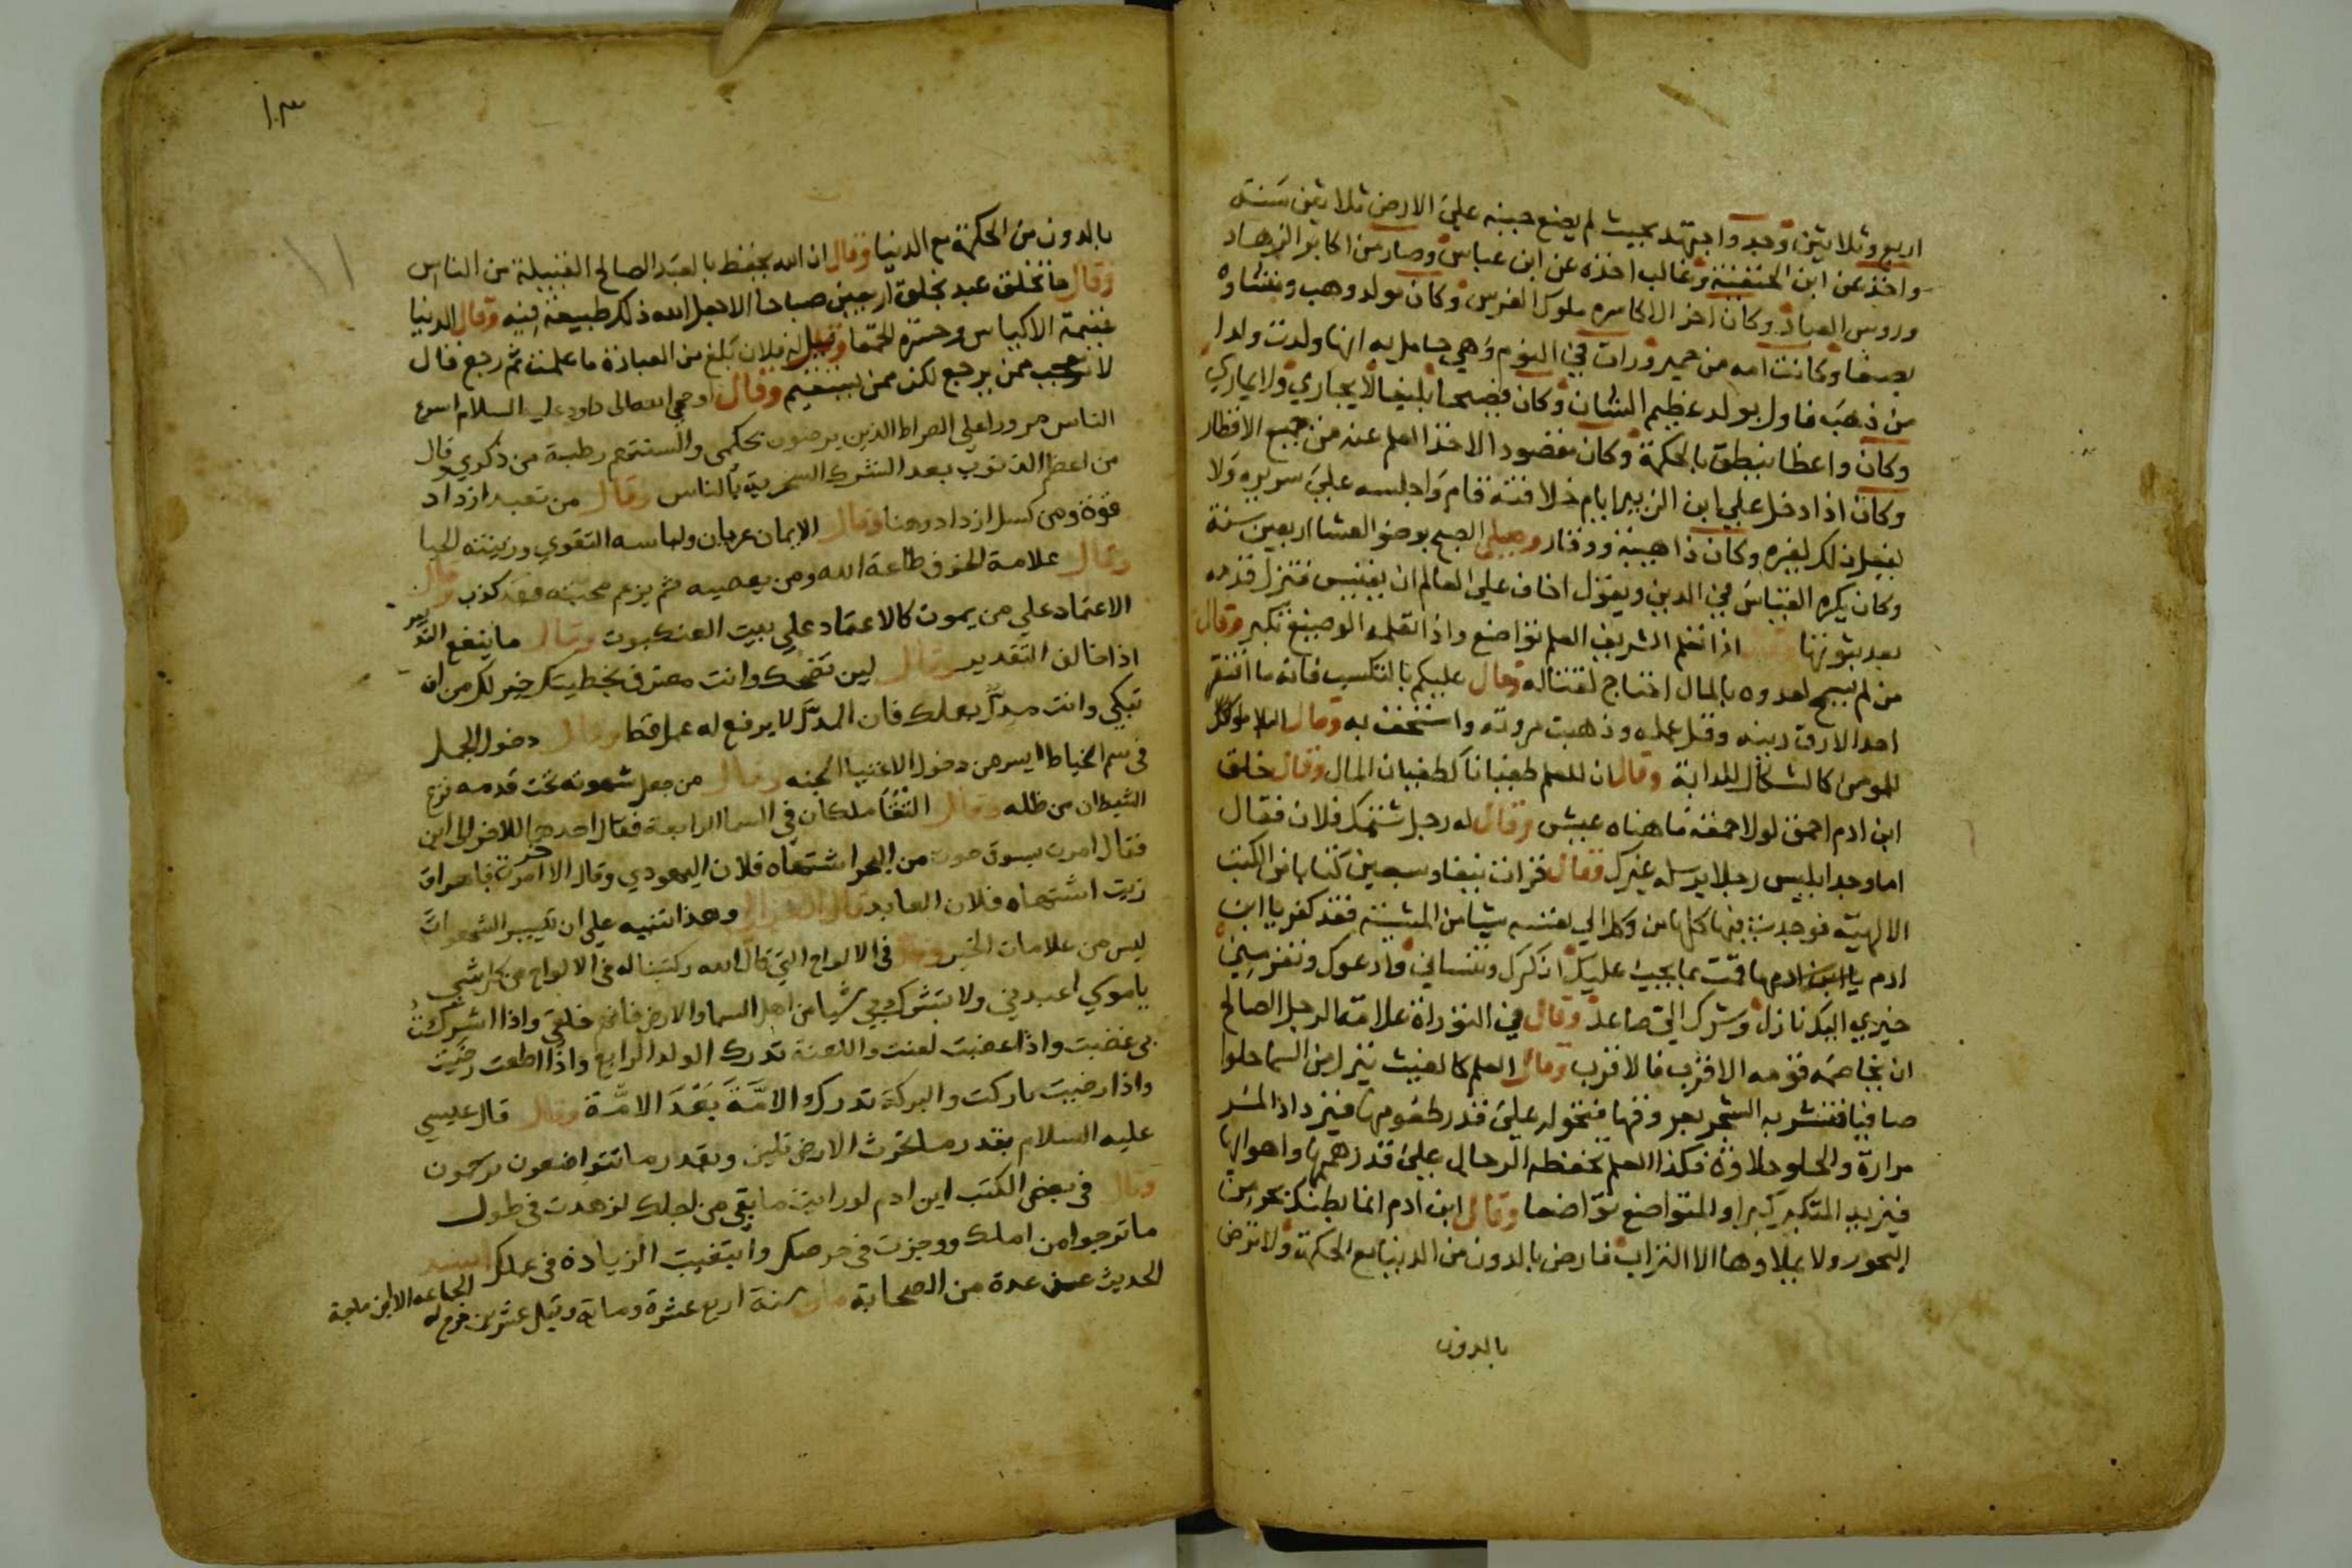 اربع وثلاثين وجد واجتهد بحيث لم يضع جنبه على الارض ثلاثين سنة
واخذ عن ابن الحنفية وغالب اخذه عن ابن عباس وصار من اكابر الزهاد
وروس العباد وكان اخر الاكاسره ملوك الفرس وكان مولد وهب ومنشاوه
بصنعا وكانت امه من حمير ورات في النوم وهي حامل به انها ولدت ولدا
من ذهب فاول بولد عظيم الشان وكان فصيحا بليغا لا يجاري ولا يماري
وكان واعظا ينطق بالحكمة وكان مقصودا لاخذ العلم عنه من جميع الاقطار
وكان اذا دخل على ابن الزبير ايام خلافته قام واجلسه على سريره ولا
يفعل ذلك لغيره وكان ذا هيبة ووقار وصلى الصبح بوضو العشا اربعين سنة
وكان يكره القياس في الدين ويقول اخاف على العالم ان يقيس فتزل قدمه
بعد ثبوتها اذا تعلم الشريف العلم تواضع واذا تعلمه الوضيع تكبر وقال
من لم يسمح لعدوه بالمال احتاج لقتاله وقال عليكم بالتكسب فانه ما افتقر
احد الا رق دينه وقل عقله وذهبت مروته واستخف به وقال البلا
للمومن كالشكال للدابة وقال ان للعلم طغيانا كطغيان المال وقال خلق
ابن ادم احمق لولا حمقه ما هناه عيش وقال له رجل شتمك فلان فقال
اما وجد ابليس رجلا يرسله غيرك وقال قرات نيفا وسبعين كتابا من الكتب
الالهية فوجدت فيها كلها من وكل الى نفسه شيا من المشية فقد كفر يا ابن
ادم ما قمت بما يجب عليك اذكرك وتنساني وادعوك وتفر مني
خيري اليك نازل وشرك الي صاعد وقال في التوراة علامة الرجل الصالح
ان يخاصمه قومه الاقرب فالاقرب وقال العلم كالغيث ينزل من السما حلوا
صافيا فتشربه الشجر بعروقها فتحوله على قدر طعومها فيزداد المر
مرارة والحلو حلاوة فكذا العلم تحفظه الرجال على قدر هممها واهوايها
فيزيد المتكبر كبرا والمتواضع تواضعا وقال ابن ادم انما بطنك بحر من
البحور ولا يملاوها الا التراب فارض بالدون من الدنيا مع الحكمة ولا ترض
بالدون
١٠٣
بالدون من الحكمة مع الدنيا وقال ان الله يحفظ بالعبد الصالح القبيلة من الناس
وقال ما تخلق عبد بخلق اربعين صباحا الا جعل الله ذلك طبيعة فيه وقال الدنيا
غنيمة الاكياس وحسرة الحمقا وقيل له فلان بلغ من العبادة ما علمت ثم رجع قال
لا تعجب ممن يرجع لكن ممن يستقيم وقال اوحى الله تعالى داود عليه السلام اسرع
الناس مرورا على الصراط الذين يرضون بحكمى والسنتهم رطبة من ذكري وقال
من اعظم الذنوب بعد الشرك السخرية بالناس وقال من تعبد ازداد
قوة ومن كسل ازداد وهنا وقال الايمان عريان ولباسه التقوي وزينته الحيا
وقال علامة الخوف طاعة الله ومن يعصيه ثم يزعم محبته فقد كذب وقال
الاعتماد على من يموت كالاعتماد على بيت العنكبوت وقال ما ينفع التدبير
اذا خالف التقدير وقال لين تضحك وانت معترف بخطيتك خير لك من ان
تبكي وانت مدل بعملك فان المدل لا يرفع له عمل قط وقال دخول الجمل
فى سم الخياط ايسر من دخول الاغنيا الجنه وقال من جعل شهوته تحت قدمه فزع
الشيطان من ظله وقال التقا ملكان فى السما الرابعة فقال احدهما للاخر الى اين
فقال امرت بسوق حوت من البحر اشتهاه فلان اليهودي وقال الاخر امرت باهراق
زيت اشتهاه فلان العابد قال الغزالي وهذا تنبيه على ان تيسير الشهوات
ليس من علامات الخير وقال فى الالواح التي قال الله وكتبنا له فى الالواح من كل شي
يا موسى اعبدني ولا تشرك بي شيا من اهل السما والارض فانهم خلقي واذا اشرك
بى غضبت واذا غضبت لعنت واللعنة تدرك الولد الرابع واذا اطعت رضيت
واذا رضيت باركت والبركة تدرك الامة بعد الامة وقال قال عيسي
عليه السلام بقدر ما تحرث الارض تلين وبقدر ما تتواضعون ترحمون
وقال فى بعض الكتب ابن ادم لو رايت ما بقي من اجلك لزهدت فى طول
ما ترجوا من املك ووجزت فى حرصك وابتغيت الزيادة فى عملك اسند
الحديث عن عدة من الصحابة مات سنة اربع عشرة وماية وقيل عشر خرج له الجماعه الا ابن ماجة